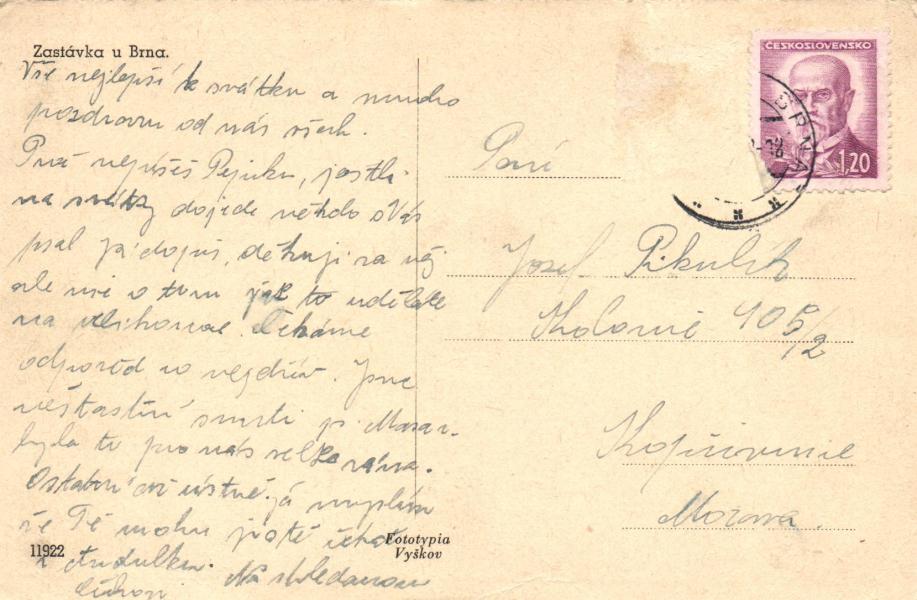 Zastávka u Brna.
Vše nejlepší k svátku a mnoho
pozdravu od nás všech.
Proč nepíšeš Pepíku, jestli
na svátky dojede někdo o Vás
psal já dopis, děkuji za něj
ale píše o tom jak to uděláte
na
odpověď co nejdřív. Jsme
nešťastní smrti p. Masar.
byla to pro nás velká rána.
Ostatní až ústně. já myslím
že Tě mohu ještě
z Andulkou.
Na shledanou
11922
Fototypia
Vyškov
ČESKOSLOVENSKO
1,20
BRNA
Paní
Josef Pikulík
Kolonie 405/2
Kopřivnice
Morava.